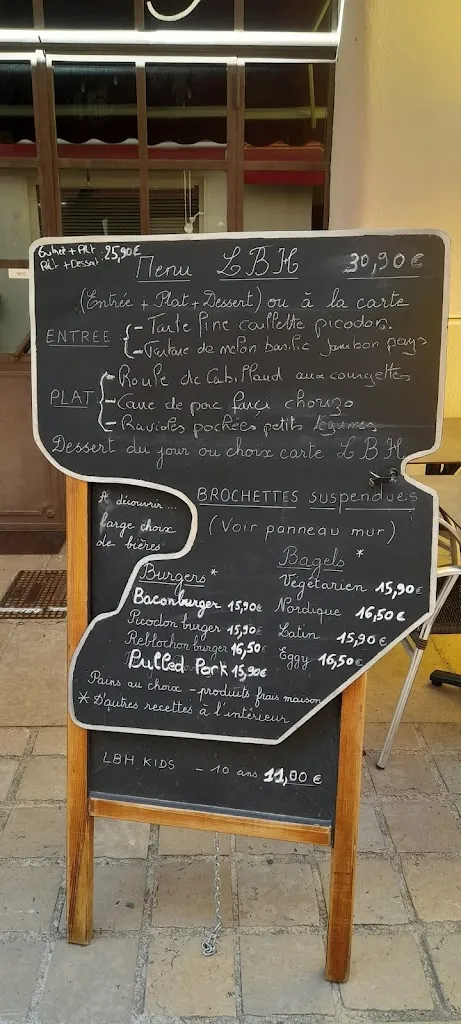 Entrée + Plat
Plat + Dessert 25,90€
Menu LBH 30,90€
(Entrée + Plat + Dessert) ou à la carte
ENTREE
- Tarte fine caillette picodon.
- Tartare de melon basilic jambon pays
PLAT
- Roulé de Cabillaud aux courgettes
- porc farçi chorizo
- Ravioles pochées petits légumes
Dessert du jour ou choix carte LBH
A découvrir...
large choix
de bières
BROCHETTES suspendues
(Voir panneau mur)
Burgers *
Baconburger 15,90€
Picodon burger 15,90€
Reblochon burger 16,50€
Pulled Pork 15,90€
Bagels *
Végétarien 15,90€
Nordique 16,50€
Latin 15,90€
Eggy 16,50€
Pains au choix - produits frais maison
* D'autres recettes à l'intérieur
LBH KIDS - 10 ans 11,00 €